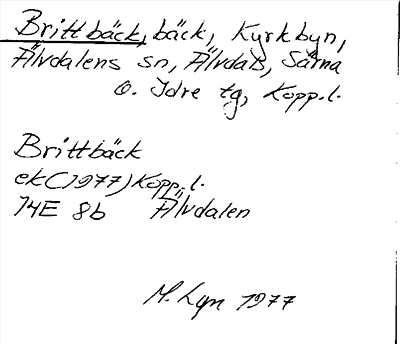 Brittbäck, bäck, Kyrkbyn,
Älvdalens sn, Älvdals, Särna
o. Idre tg, Kopp.l.
Brittbäck
ek (1977) Kopp.l.
14E 8b Älvdalen
M. Lyn 1977